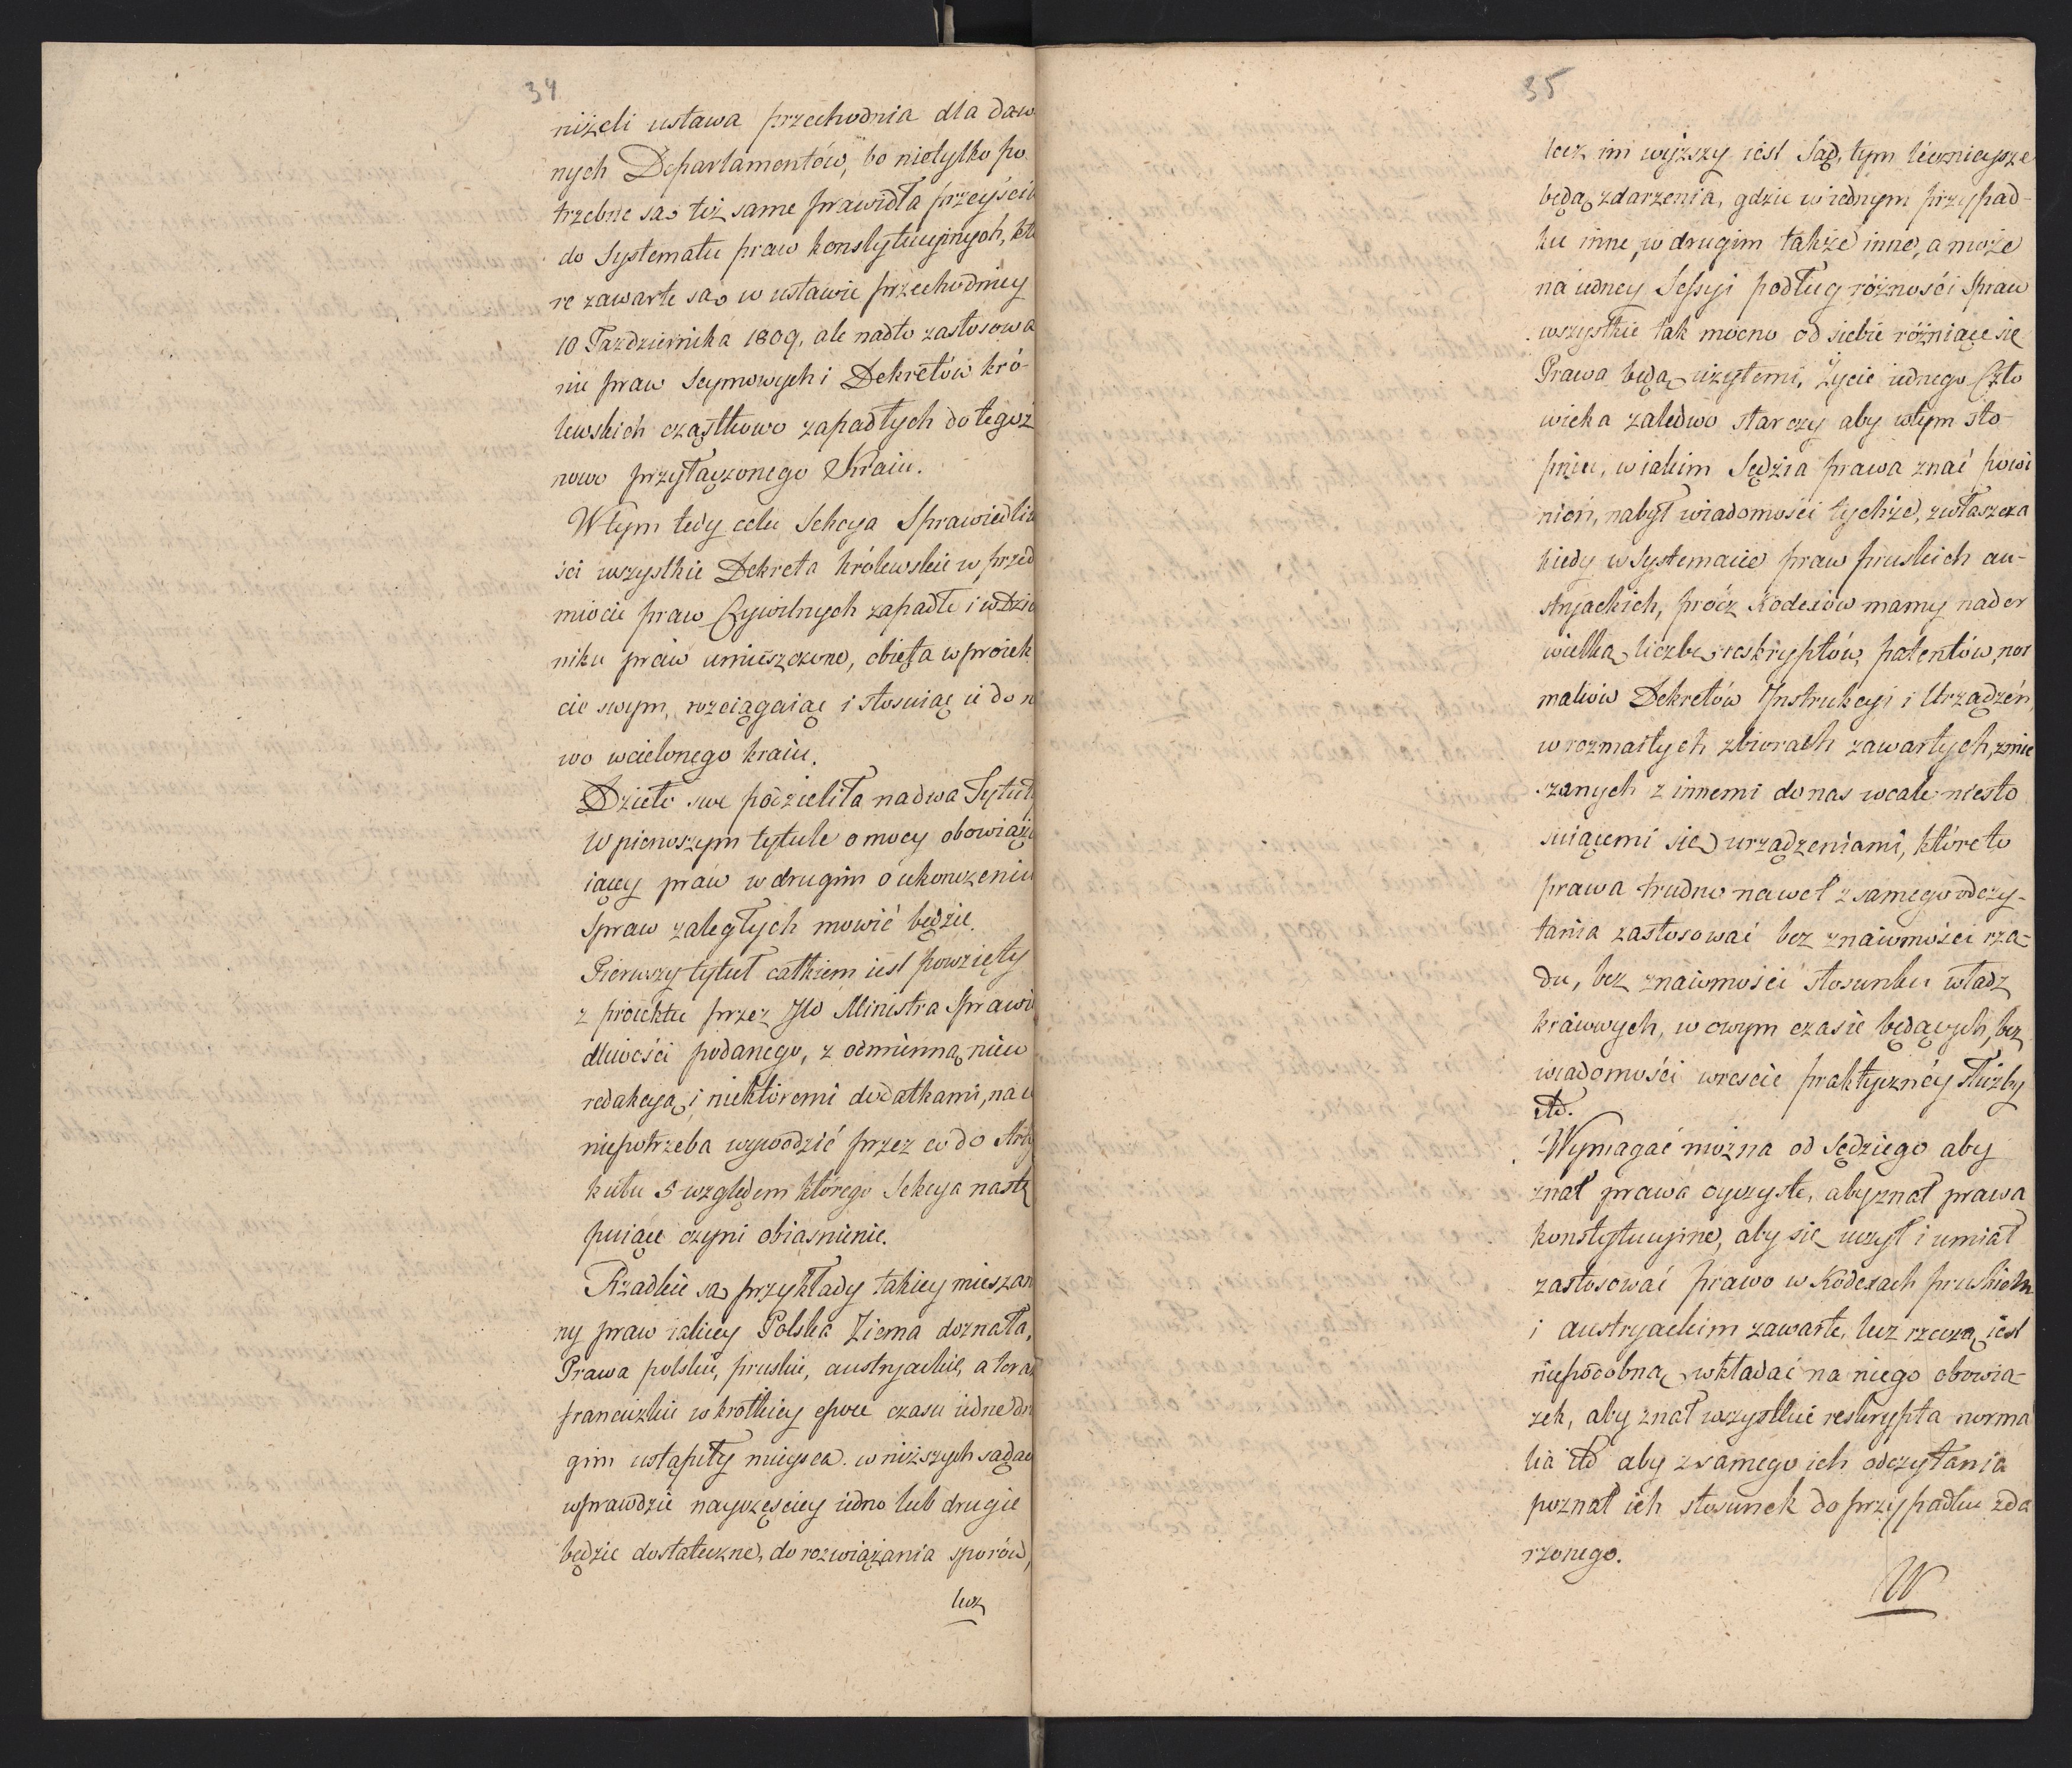 34
niżeli ustawa przechodnia dla daw
nych Departamentów, bo nietylko po
trzebne są też same prawidła przeyścia
do Systematu praw konstytucyinych, któ
re zawarte są w ustawie przechodniey
10 Października 1809, ale nadto zastosowa
nie praw Seymowych i Dekretów kró-
lewskich cząstkowo zapadłych do tegoż
nowo przyłączonego Kraiu.
W tym tedy celu Sekcya Sprawiedliw
ści wszystkie Dekreta królewskie w przed
miocie praw Cywilnych zapadłe i w Dzie
niku praw umieszczone, obięła w proiek
cie swym, rozciągaiąc i stosuiąc ie do n
wo wcielonego kraiu.
Dzieło swe podzieliła na dwa Tytuły
W pierwszym tytule o mocy obowiązu
iącey praw w drugim o ukończeniu
Spraw zaległych mowić będzie.
Pierwszy tytuł całkiem iest powzięty
z proiektu przez JW Ministra Sprawie
dliwości podanego, z odmienną nieco
redakcyą i niektóremi dodatkami, na c
niepotrzeba wywodzić przez co do Arty
kułu 5 względem którego Sekcya nastę
puiące czyni obiasnienie.
Rzadkie są przykłady takiey mieszani
ny praw iakiey Polska Ziemia doznała,
Prawa polskie, pruskie, austryackie, a teraz
francuzkie w krótkiey epoce czasu iedne dru
gim ustąpiły mieysca. w niższych sądach
wprawdzie nayczęściey iedno lub drugie
będzie dostateczne, do rozwiązania sporów,
lecz
35
lecz im wyższy iest Sąd, tym licznieysze
będą zdarzenia, gdzie w iednym przypad-
ku inne, w drugim także inne, a może
na iedney Sessyi podług różności Spraw
wszystkie tak mocno od siebie różniące się
Prawa będą użytemi. Życie iednego Czło
wieka zaledwo starczy aby w tym sto-
pniu, w iakim Sędzia prawa znać powi
nien, nabył wiadomości tychże, zwłaszcza
kiedy w Systemacie praw pruskich au-
stryackich, prócz Kodexów mamy nader
wielką liczbę reskryptów, patentów, nor
maliów Dekretów Instrukcyi i Urządzeń
w rozmaitych zbiorach zawartych, zmie
szanych z innemi do nas wcale niesto
suiącemi się urządzeniami, które to
prawa trudno nawet z samego odczy-
tania zastosować bez znaiomości rzą-
du, bez znaiomości stosunku władz
kraiowych, w owym czasie będących, bez
wiadomości wreście praktyczney służby
itd.
Wymagać można od Sędziego aby
znał prawa oyczyste, aby znał prawa
konstytucyine, aby się uczył i umiał
zastosować prawo w Kodexach pruskiem
i austryackim zawarte, lecz rzeczą iest
niepodobną wkładać na niego obowią-
zek, aby znał wszystkie reskrypta norma
lia itd aby z samego ich odczytania
poznał ich stosunek do przypadku zda
rzonego.
W